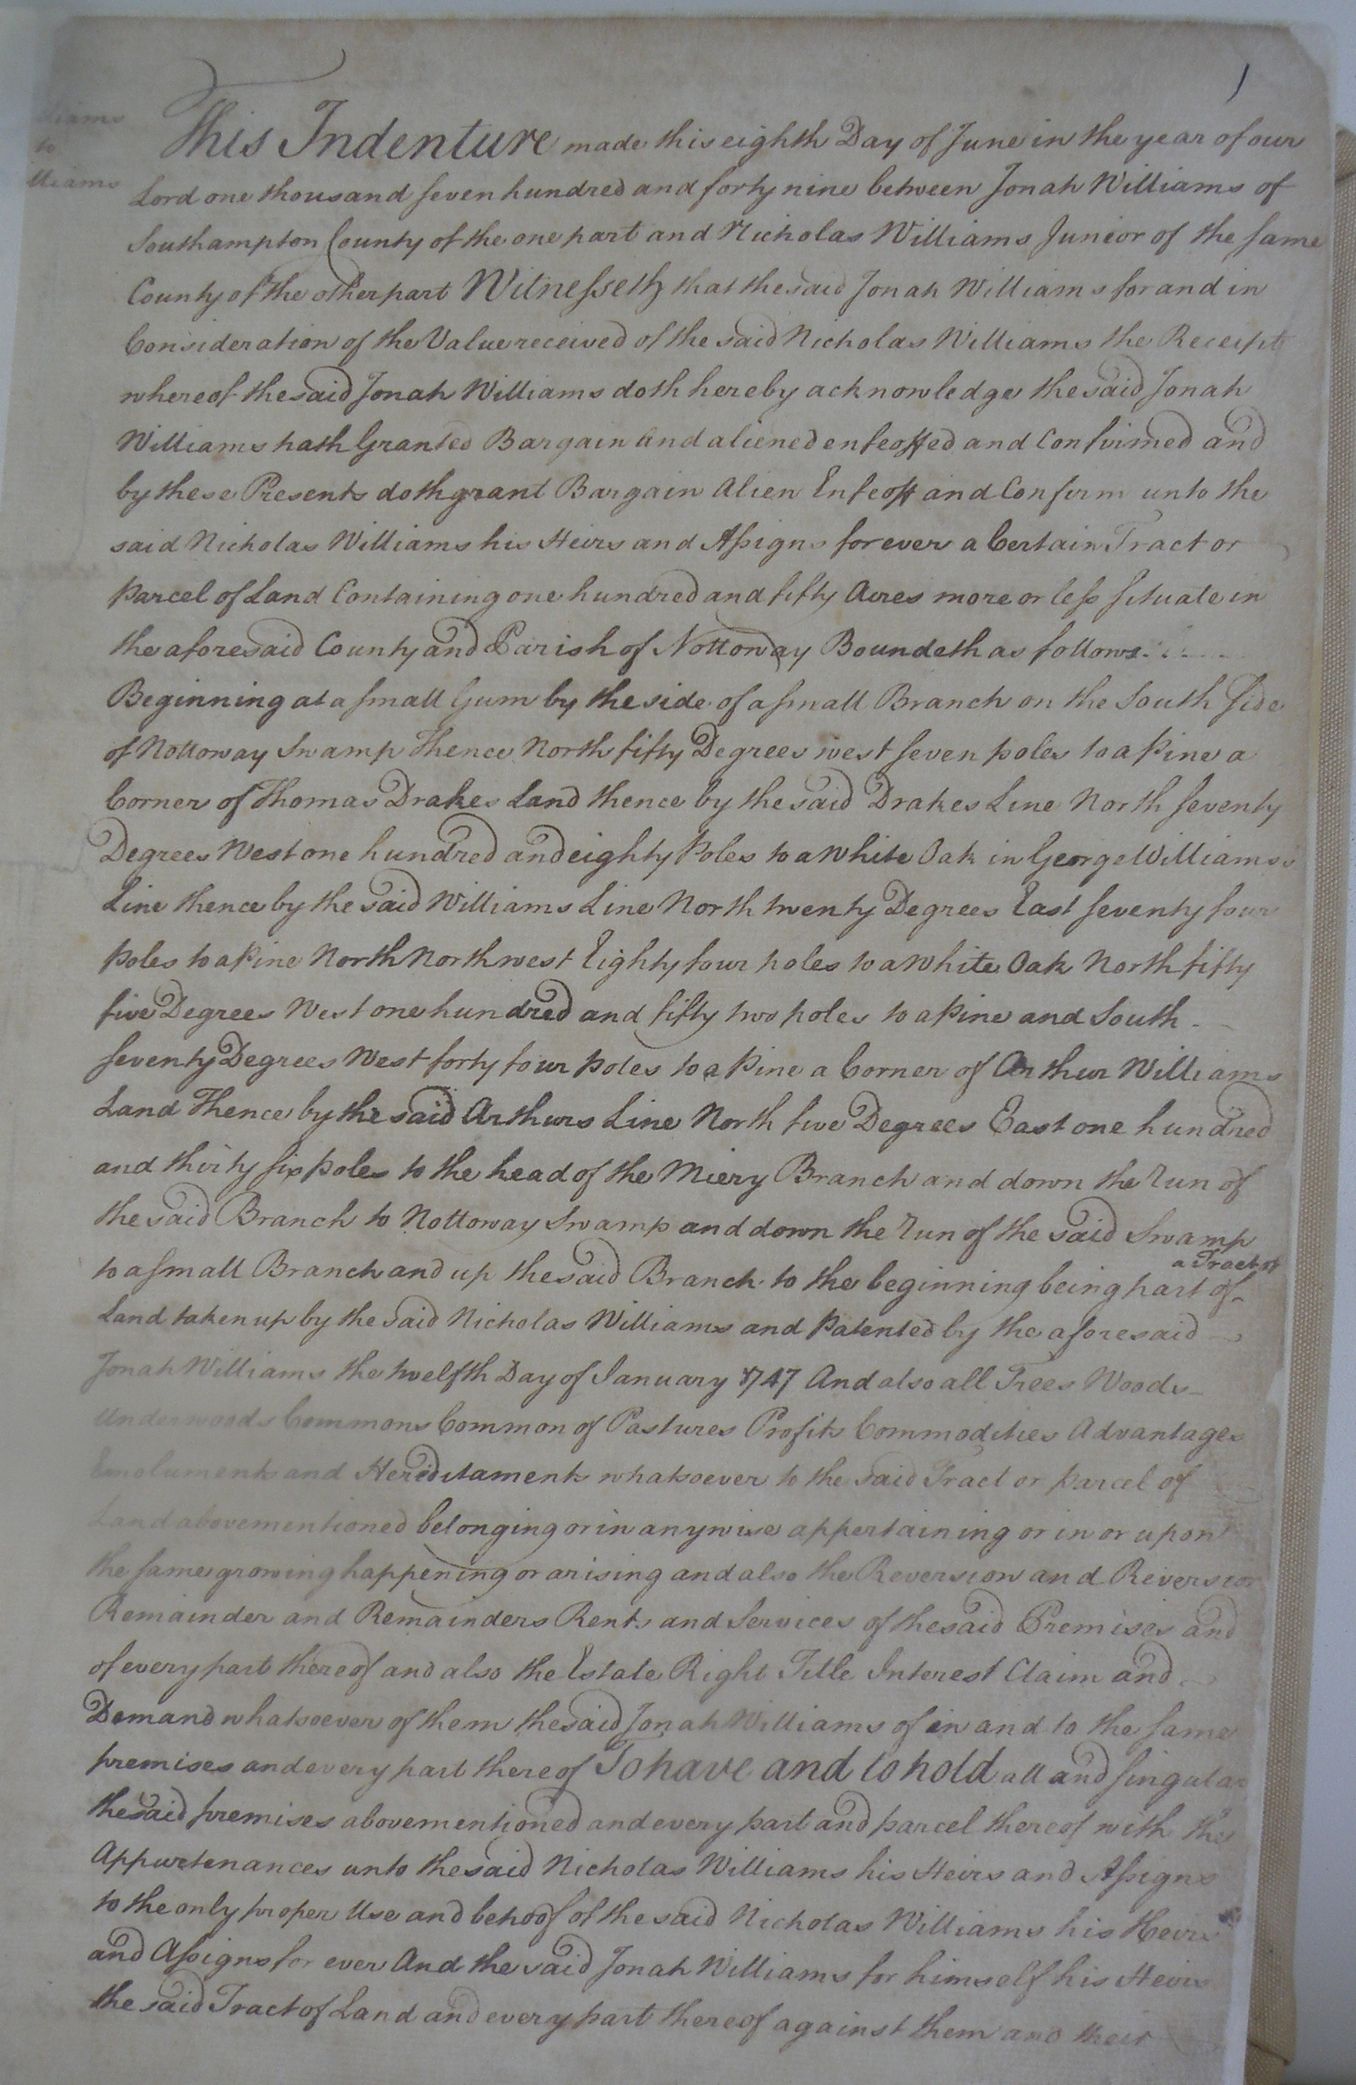 1
liams
to
lliams
This Indenture made this eighth Day of June in the year of our
Lord one thousand seven hundred and forty nine between Jonah Williams of
Southampton County of the one part and Nicholas Williams Junior of the same
County of the other part Witnesseth that the said Jonah Williams for and in
Consideration of the Value received of the said Nicholas Williams the Receipt
whereof the said Jonah Williams doth hereby acknowledge the said Jonah
Williams hath Granted Bargain and aliened enfeoffed and Confirmed and
by these Presents doth grant Bargain Alien Enfeoff and Confirm unto the
said Nicholas Williams his Heirs and Assigns for ever a Certain Tract or
parcel of Land Containing one hundred and fifty Acres more or less situate in
the aforesaid County and Parish of Nottoway Boundeth as follows
Beginning at a small Gum by the side of a small Branch on the South side
of Nottoway Swamp Thence North fifty Degrees west seven poles to a Pine a
Corner of Thomas Drakes Land thence by the said Drakes Line North seventy
Degrees West one hundred and eighty Poles to a White Oak in George Williams's
Line thence by the said Williams Line North twenty Degrees East seventy four
poles to a Pine North North west Eighty four poles to a White Oak North fifty
five Degrees West one hundred and fifty two poles to a Pine and South
seventy Degrees West forty four poles to a Pine a Corner of Arthur Williams
Land Thence by the said Arthurs Line North five Degrees East one hundred
and thirty six poles to the head of the Miery Branch and down the Run of
the said Branch to Nottoway Swamp and down the Run of the said Swamp
to a small Branch and up the said Branch to the beginning being part of a Tract of
Land taken up by the said Nicholas Williams and Patented by the aforesaid
Jonah Williams the twelfth Day of January 1747 And also all Trees Woods
Underwoods Commons Common of Pastures Profits Commodities Advantages
Emoluments and Hereditaments whatsoever to the said Tract or parcel of
Land abovementioned belonging or in anywise appertaining or in or upon
the same growing happening or arising and also the Reversion and Reversion
Remainder and Remainders Rents and Services of the said Premises and
of every part thereof and also the Estate Right Title Interest Claim and
Demand whatsoever of them the said Jonah Williams of in and to the same
premises and every part thereof To have and to hold all and singular
the said premises abovementioned and every part and parcel thereof with the
Appurtenances unto the said Nicholas Williams his Heirs and Assigns
to the only proper Use and behoof of the said Nicholas Williams his Heirs
and Assigns for ever And the said Jonah Williams for himself his Heirs
the said Tract of Land and every part thereof against them and their